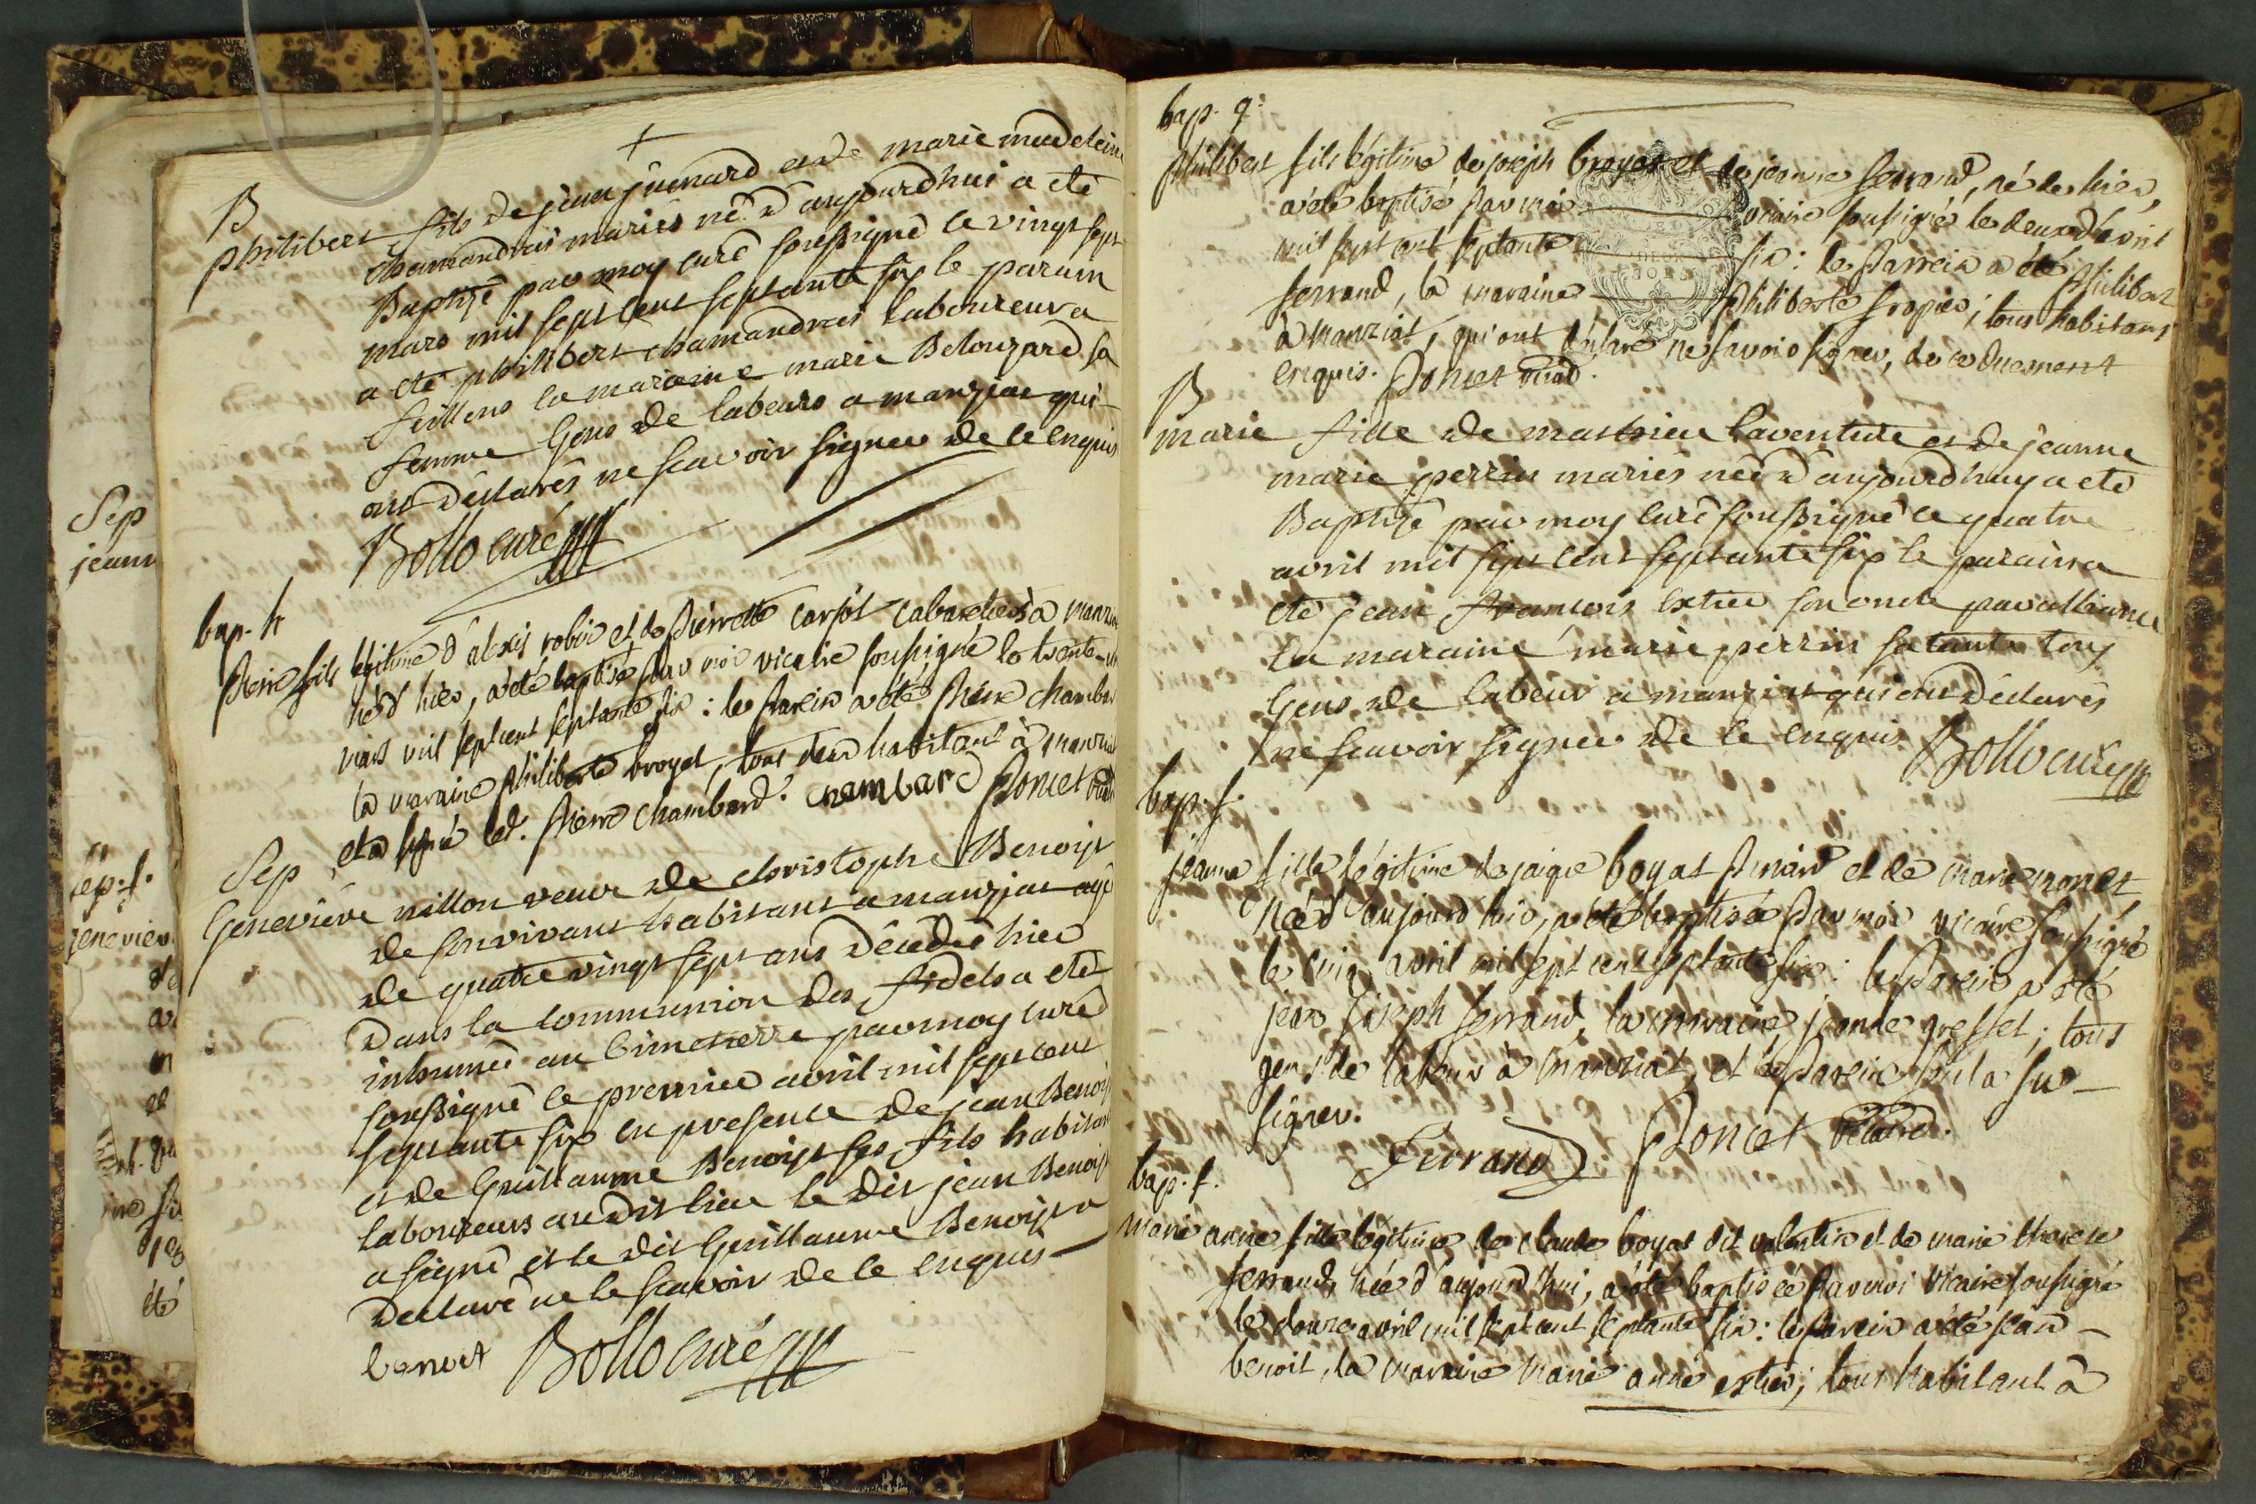 B
philibert fils de jean juenard et de marie madeleine
chamandrai mariés né d'aujourdhui a eté
Baptisé par moy curé soussigné le vingt sept
mars mil sept cent septante six le parain
a eté philibert chamandrai laboureur a
la maraine marie Belouzard sa
femme gens de labeurs a manziat qui
ont déclarés ne scavoir signer de ce enquis
Bollo curé
bap. h
pierre fils légitime d'alexis robin et de pierrette carjot cabaretiers à manziat
né d'hier, a été baptisé par moi vicaire soussigné le trente-un
mars mil sept cent septante six : le parein a été pierre chambard
la maraine philiberte broyet, tous deux habitant à manziat
et a signé led. pierre chambard. chambard poncet vicaire
Sep
Geneviéve nillon veuve de christophe Benoist
de son vivant habitant a manziat agé
de quatre vingt sept ans décedé hier
dans la communion des fidels a eté
inhumée au cimetierre par moy curé
soussigné le premier avril mil sept cent
septante six en presence de jean Benoist
et de Guillaume Benoist ses fils habitant
laboureurs audit lieu le dit jean Benoist
a signé et le dit Guillaume Benoist a
declaré ne le scavoir de ce enquis
benoit Bollo curé
Sep
jeann
sep. f.
geneviev
été
bap. g.
philibert fils légitime de joseph broyer et de jeanne ferrand, né le hier,
a été baptisé par moi vicaire soussigné le deux d'avril
mil sept cent septante six : le parrein a été philibert
ferrand, la maraine philiberte fropier ; tous habitans
à manziat, qui ont déclaré ne savoir signer, de ce duement
enquis. poncet vicaire.
B
marie fille de mathieu laventure et de jeanne
marie perrin mariés née d'aujourdhuy a eté
Baptisé par moy curé soussigné le quatre
avril mil sept cent septante six le parain a
eté jean francois extier son oncle par alliance
la maraine marie perrin sa tante tous
gens de labeur a manziat qui ont déclarés
ne scavoir signer de ce enquis Bollo curé
bap. f.
jeanne fille légitime de jaique boyat pinard et de marie monet,
née d'aujourd'hui, a été baptisée par moi vicaire soussigné
le cinq avril mil sept cent septante six : le parein a été
jean joseph ferrand, la maraine jeanne gresset ; tous
gens de labeur à manziat, et le parein seul a su
signer.
ferrand poncet vicaire.
bap. f.
marie anne fille légitime de claude boyat dit valentin et de marie therese
ferrand, née d'aujourd'hui, a été baptisée par moi vicaire soussigné
le douze avril mil sept cent septante six : le parein a été jean
benoit, la maraine marie anne extier ; tous habitant à